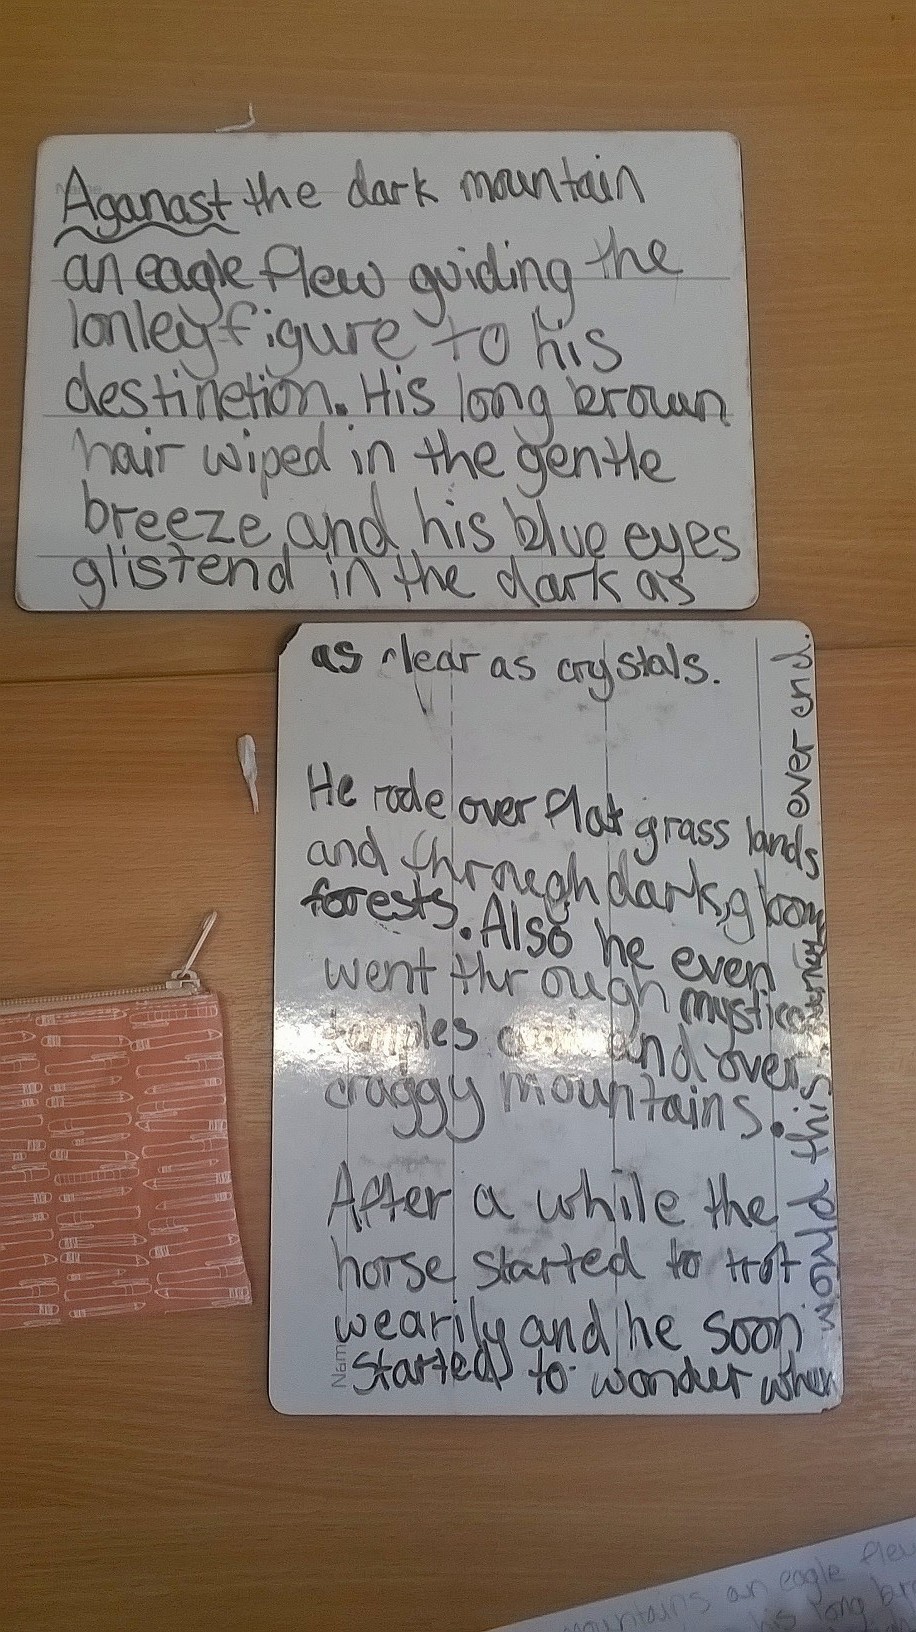 Name
Aganast the dark mountain
an eagle flew guiding the
lonley figure to his
destinetion. His long brown
hair wiped in the gentle
breeze and his blue eyes
glistend in the dark as
as clear as crystals.
He rode over flat grass lands
and through dark, gloomy
forests. Also he even
went through mystic
temples and over
craggy mountains.
After a while the
horse started to trot
wearily and he soon
started to wonder when
would this journey ever end.
Name
mountains an eagle flew
his long br